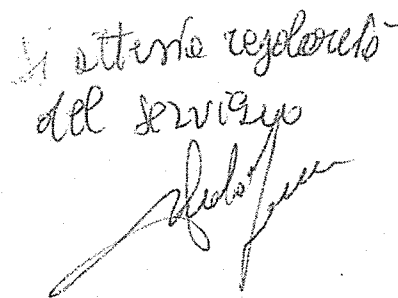 Si attesta regolarità
del servizio